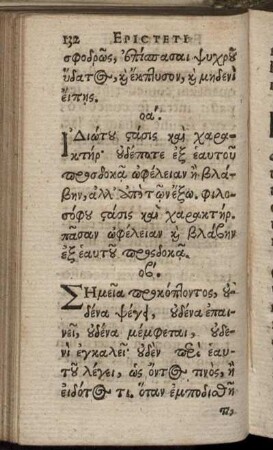 132 EPICTETI
σφοδρῶς, ἐπίσπασαι ψυχροῦ
ὕδατος, καὶ ἔκπτυσον, καὶ μηδενὶ
εἴπῃς.
οα΄.
ἸΔιώτου στάσις καὶ χαρα-
κτήρ· οὐδέποτε ἐξ ἑαυτοῦ
προσδοκᾷ ὠφέλειαν ἢ βλά-
βην, ἀλλ' ἀπὸ τῶν ἔξω. φιλο-
σόφου στάσις καὶ χαρακτήρ.
πᾶσαν ὠφέλειαν καὶ βλάβην
ἐξ ἑαυτοῦ προσδοκᾷ.
οβ΄.
ΣΗμεῖα προκόπτοντος, οὐ-
δένα ψέγει, οὐδένα ἐπαι-
νεῖ, οὐδένα μέμφεται, οὐδε-
νὶ ἐγκαλεῖ· οὐδὲν περὶ ἑαυ-
τοῦ λέγει, ὡς ὄντος τινὸς, ἢ
εἰδότος τι. ὅταν ἐμποδισθῇ